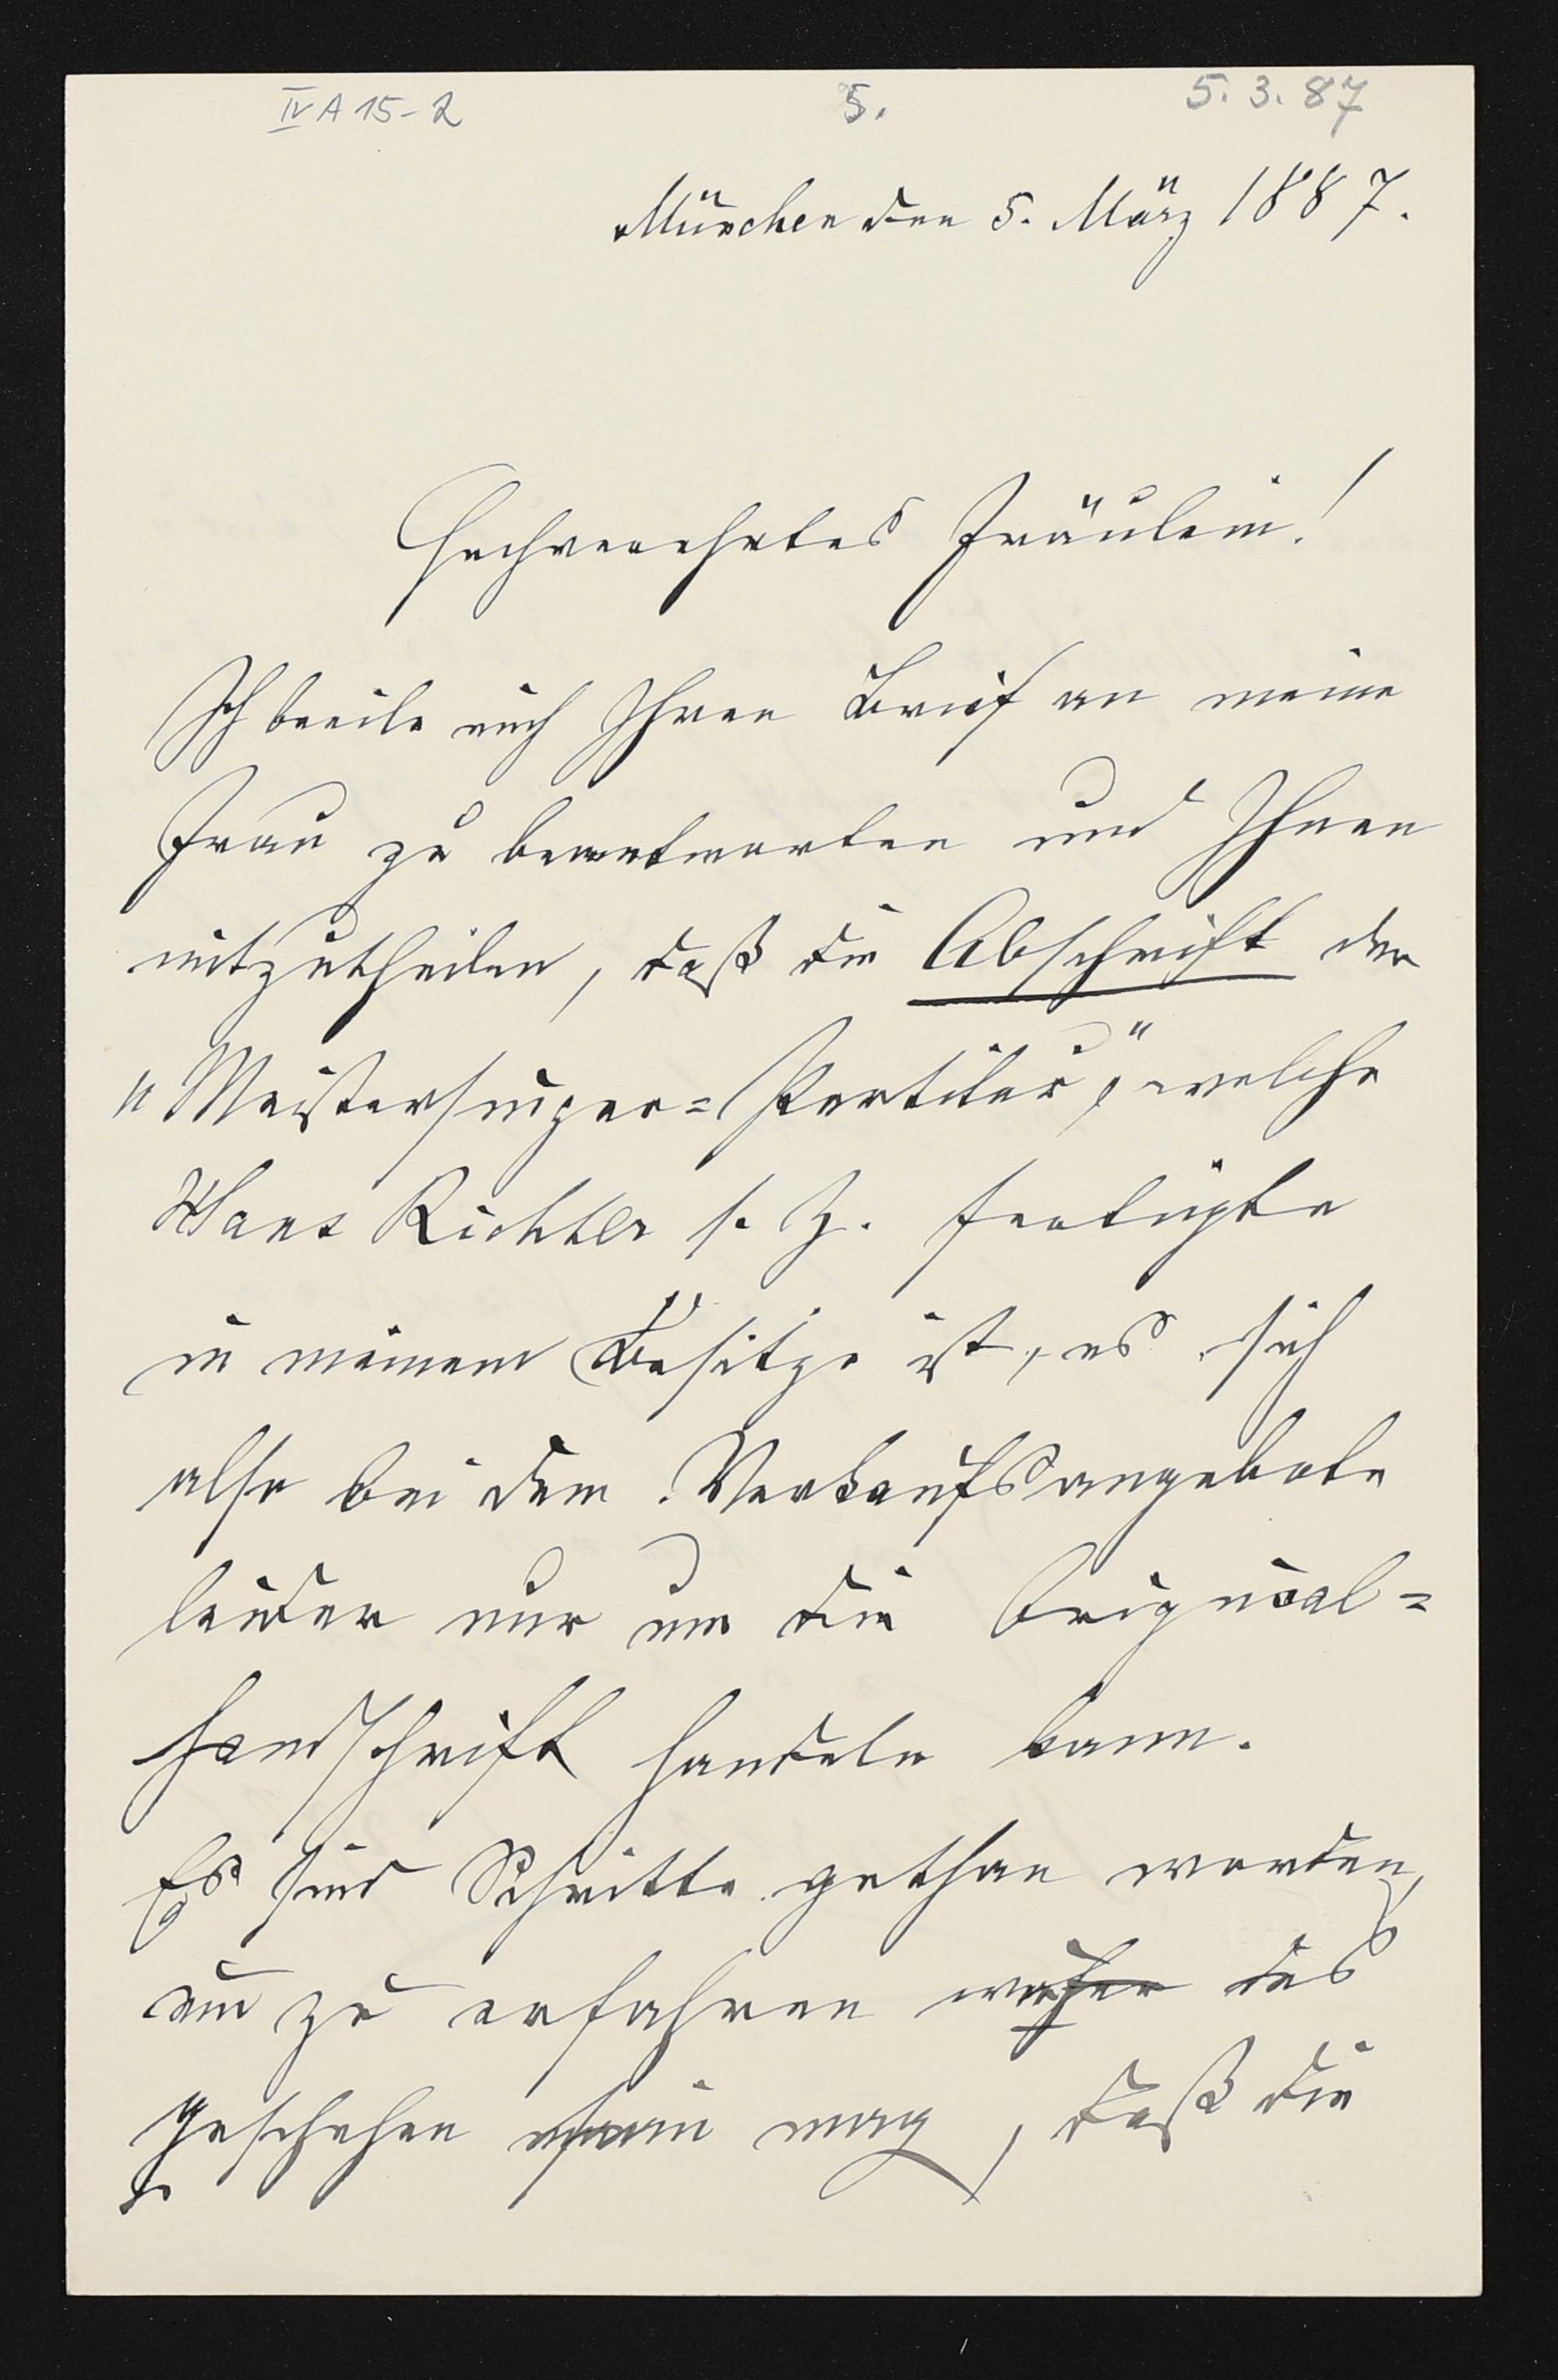 IV A 15-2 5. 5.3.87
München den 5. März 1887.
Hochverehrtes Fräulein!
Ich beeile mich Ihren Brief an meine
Frau zu beantworten und Ihnen
mitzutheilen, daß die Abschrift der
"Meistersinger=Partitur", welche
Hans Richter s. Z. fertigte
in meinem Besitze ist, es sich
also bei dem Verkaufsangebote
leider nur um die Original=
handschrift handeln kann.
Es sind Schritte gethan worden,
um zu erfahren woher das
geschehen sein mag, daß die